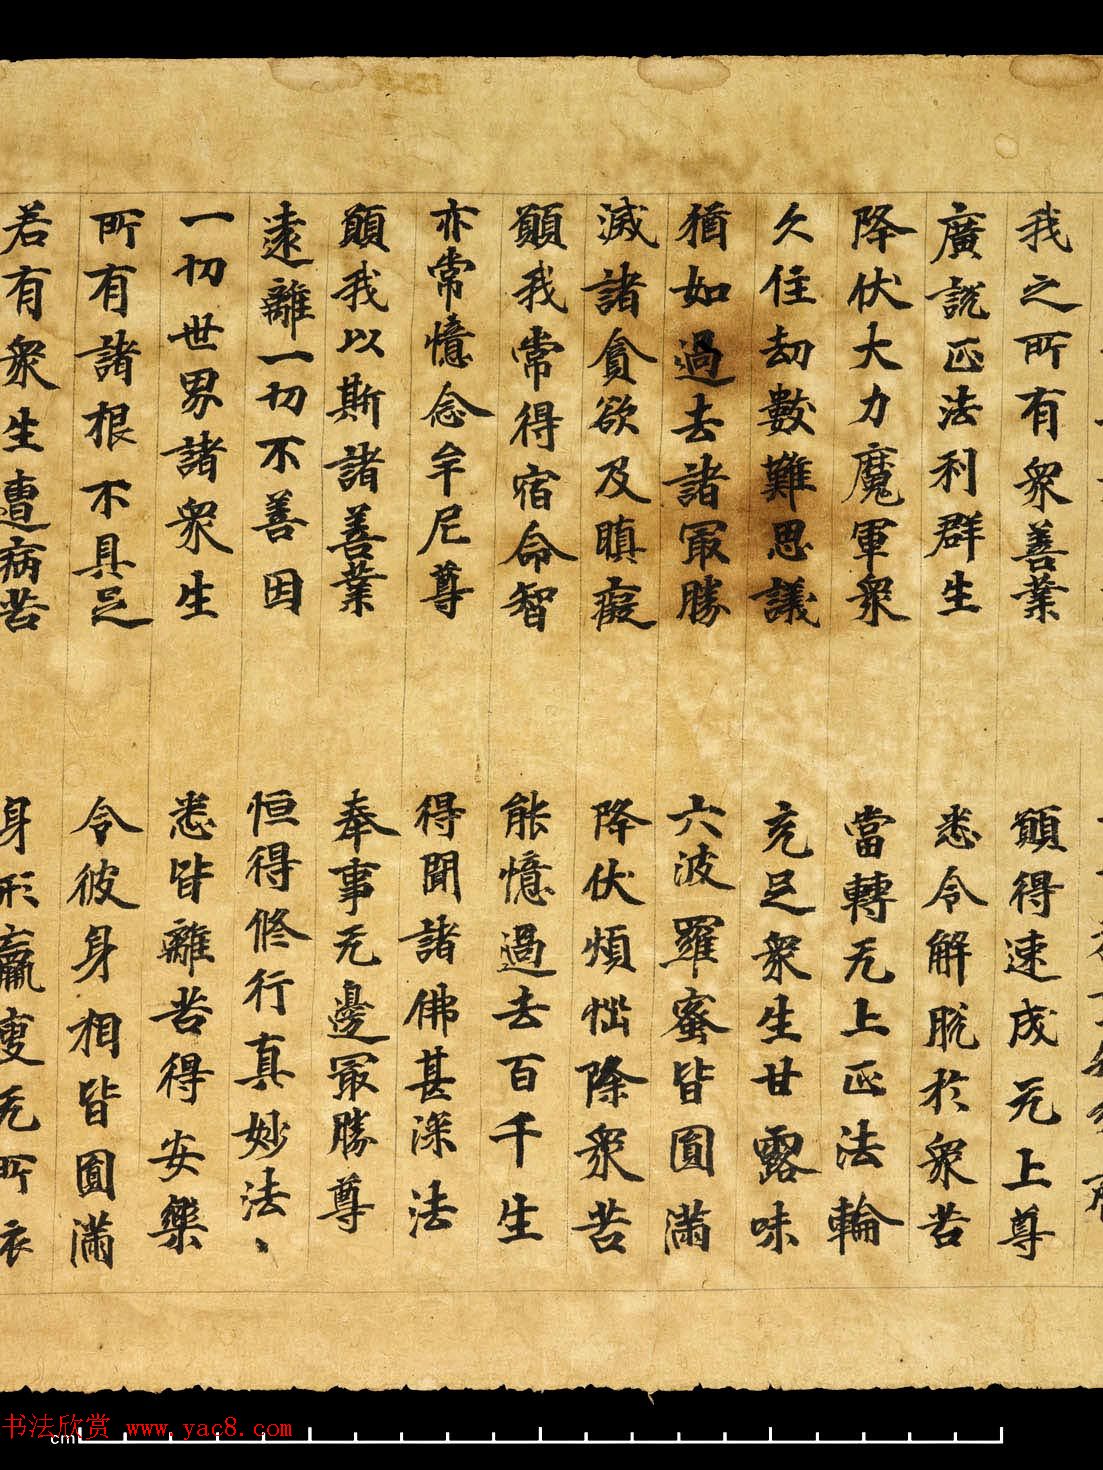 我之所有衆善業 願得速成无上尊
廣說正法利群生 悉令解脫於衆苦
降伏大力魔軍衆 當轉无上正法輪
久住劫數難思議 充足衆生甘露味
猶如過去諸冣勝 六波羅蜜皆圓滿
滅諸貪欲及瞋癡 降伏煩惱除衆苦
願我常得宿命智 能憶過去百千生
亦常憶念牟尼尊 得聞諸佛甚深法
願我以斯諸善業 奉事无邊冣勝尊
遠離一切不善因 恒得修行真妙法、
一切世界諸衆生 悉皆離苦得安樂
所有諸根不具足 令彼身相皆圓滿
若有衆生遭病苦 身形羸瘦无所依
书法欣赏 www.yac8.com
cm